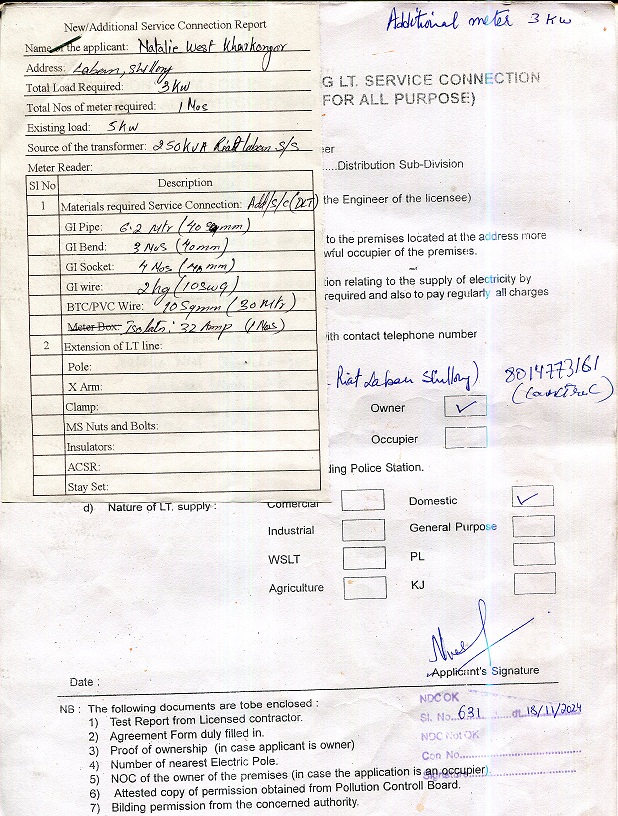 Additional meter 3 KW
New/Additional Service Connection Report
Name of the applicant: Natalie West Kharkongor
Address: Laban, Shillong
Total Load Required: 3KW
Total Nos of meter required: 1 Nos
Existing load: 5KW
Source of the transformer: 250KVA Riat Laban S/S
Meter Reader:
Sl No Description
1 Materials required Service Connection: Add/s/c
GI Pipe: 6.2 Mtr (40 mm)
GI Bend: 3 Nos (40mm)
GI Socket: 4 Nos (40mm)
GI wire: 2kg (10SWG)
BTC/PVC Wire: 10Sqmm (30 Mtr)
Meter Box: Isolator: 32 Amp (1 Nos)
2 Extension of LT line:
Pole:
X Arm:
Clamp:
MS Nuts and Bolts:
Insulators:
ACSR:
Stay Set:
G LT. SERVICE CONNECTION
FOR ALL PURPOSE)
er
.....Distribution Sub-Division
the Engineer of the licensee)
to the premises located at the address more
wful occupier of the premises.
ion relating to the supply of electricity by
required and also to pay regularly all charges
ith contact telephone number
Riat Laban Shillong) 8014773161
Owner ✓
Occupier
ding Police Station.
d) Nature of LT. supply : Comercial Domestic ✓
Industrial General Purpose
WSLT PL
Agriculture KJ
Applicant's Signature
Date :
NDC OK
Sl. No. 631 dt. 18/11/2024
NDC Not OK
Con No.
NB : The following documents are tobe enclosed :
1) Test Report from Licensed contractor.
2) Agreement Form duly filled in.
3) Proof of ownership (in case applicant is owner)
4) Number of nearest Electric Pole.
5) NOC of the owner of the premises (in case the application is an occupier)
6) Attested copy of permission obtained from Pollution Controll Board.
7) Bilding permission from the concerned authority.